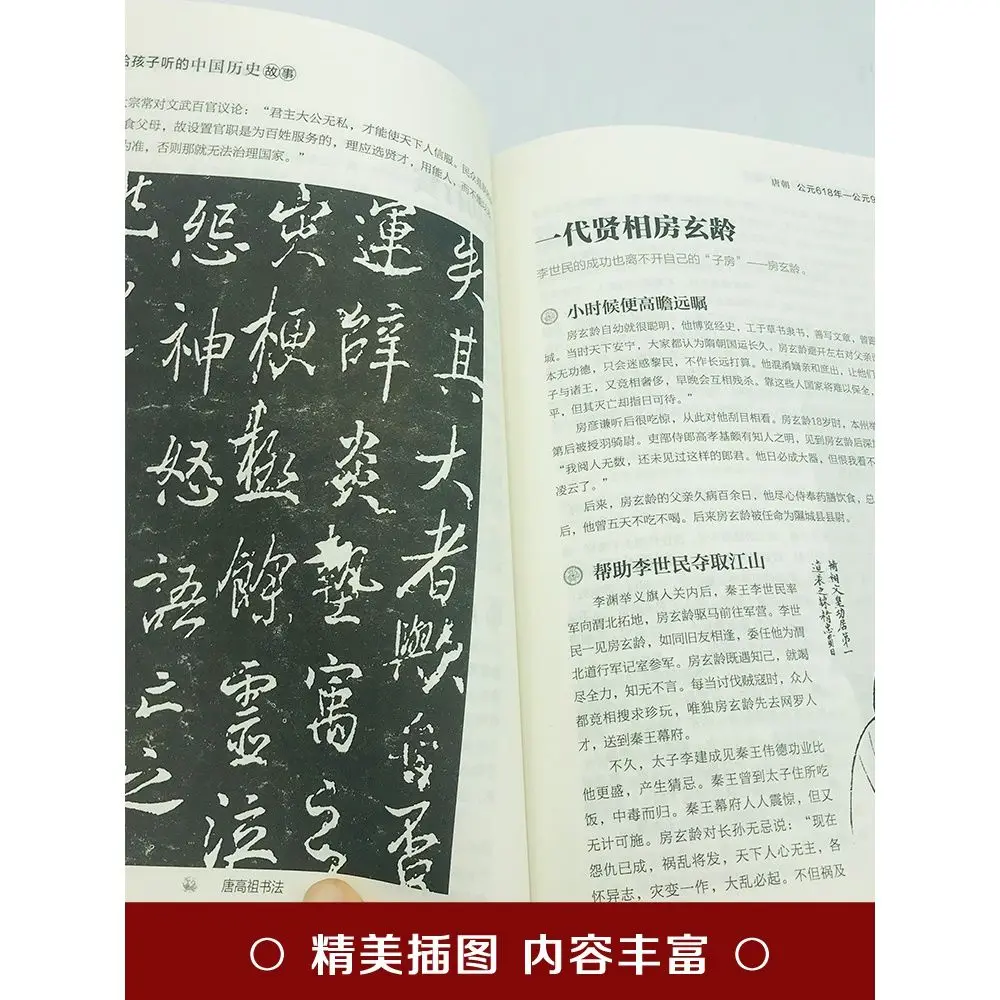 给孩子听的中国历史故事
宗常对文武百官议论：“君主大公无私，才能使天下人信服。民众
食父母，故设置官职是为百姓服务的，理应选贤才，用能人，而不能以
为准，否则那就无法治理国家。”
失其大者与
運辞炎艺寓言
梗概余灵泣
怨神怒語亡之
唐高祖书法
唐朝 公元618年—公元9
一代贤相房玄龄
李世民的成功也离不开自己的“子房”——房玄龄。
小时候便高瞻远瞩
房玄龄自幼就很聪明，他博览经史，工于草书隶书，善写文章，曾跟
城。当时天下安宁，大家都认为隋朝国运长久。房玄龄避开左右对父亲说
本无功德，只会迷惑黎民，不作长远打算。他混淆嫡亲和庶出，让他们
子与诸王，又竞相奢侈，早晚会互相残杀。靠这些人国家将难以保全，
平，但其灭亡却指日可待。”
房彦谦听后很吃惊，从此对他刮目相看。房玄龄18岁时，本州举
第后被授羽骑尉。吏部侍郎高孝基颇有知人之明，见到房玄龄后深
“我阅人无数，还未见过这样的郎君。他日必成大器，但恨我看不
凌云了。”
后来，房玄龄的父亲久病百余日，他尽心侍奉药膳饮食，总
后，他曾五天不吃不喝。后来房玄龄被任命为隰城县县尉。
帮助李世民夺取江山
李渊举义旗入关内后，秦王李世民率
军向渭北拓地，房玄龄驱马前往军营。李世
民一见房玄龄，如同旧友相逢，委任他为渭
北道行军记室参军。房玄龄既遇知己，就竭
尽全力，知无不言。每当讨伐贼寇时，众人
都竞相搜求珍玩，唯独房玄龄先去网罗人
才，送到秦王幕府。
不久，太子李建成见秦王伟德功业比
他更盛，产生猜忌。秦王曾到太子住所吃
饭，中毒而归。秦王幕府人人震惊，但又
无计可施。房玄龄对长孙无忌说：“现在
怨仇已成，祸乱将发，天下人心无主，各
怀异志，灾变一作，大乱必起。不但祸及
精美插图 内容丰富